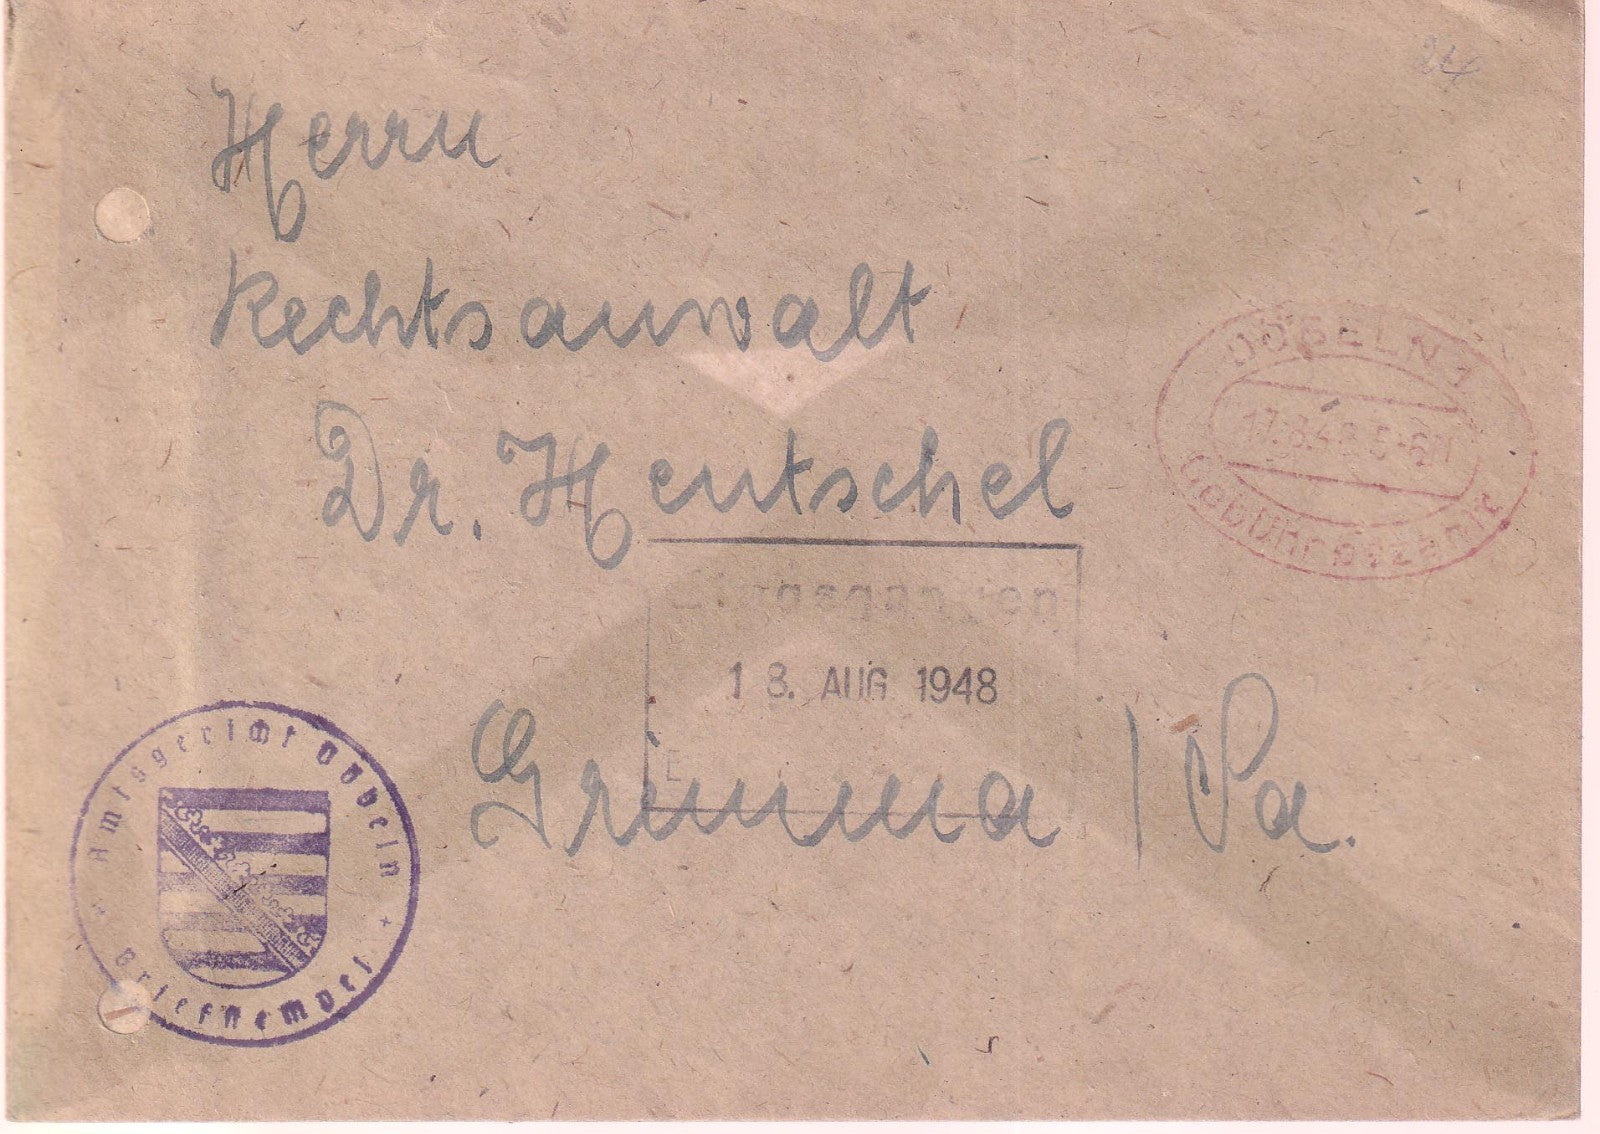 24
Herrn
Rechtsanwalt
Dr. Hentschel
Grimma / Sa.
DÖBELN 1
17.8.48.5-6
Gebühr bezahlt
Eingegangen
18. AUG 1948
E
Amtsgericht Döbeln
Briefstempel